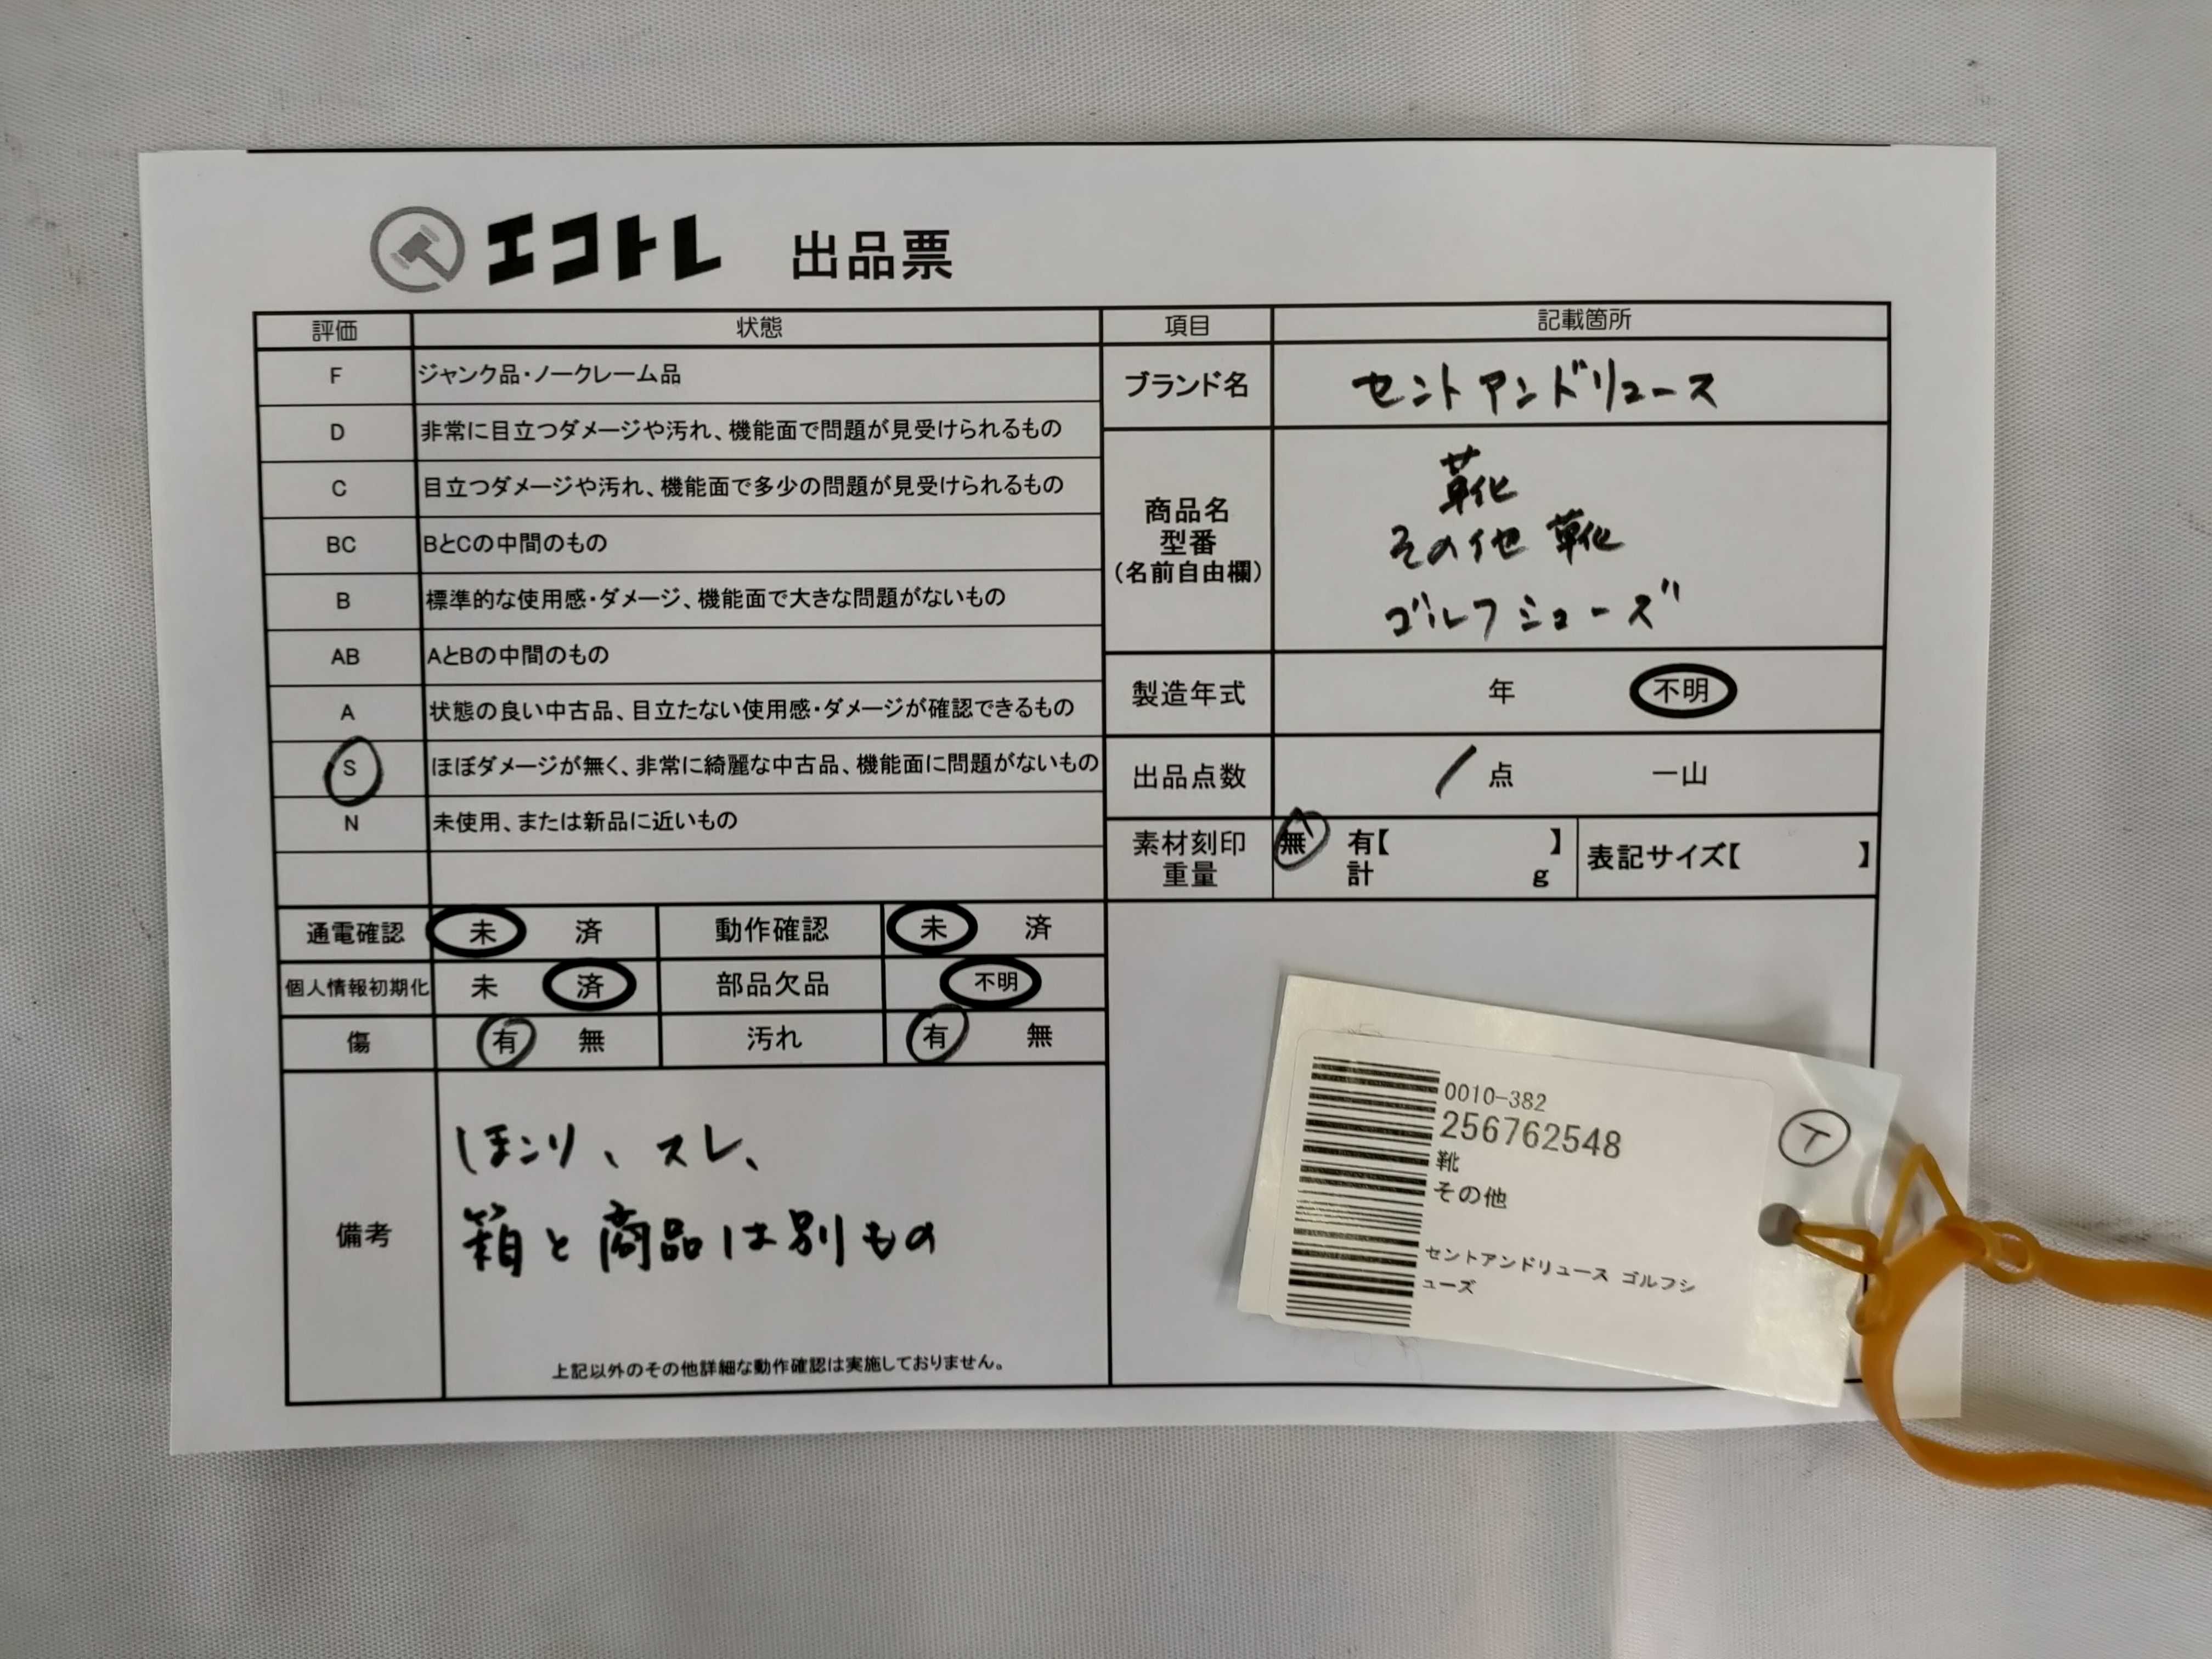 エコトレ 出品票
評価 状態 項目 記載箇所
F ジャンク品・ノークレーム品
D 非常に目立つダメージや汚れ、機能面で問題が見受けられるもの
C 目立つダメージや汚れ、機能面で多少の問題が見受けられるもの
BC BとCの中間のもの
B 標準的な使用感・ダメージ、機能面で大きな問題がないもの
AB AとBの中間のもの
A 状態の良い中古品、目立たない使用感・ダメージが確認できるもの
S ほぼダメージが無く、非常に綺麗な中古品、機能面に問題がないもの
N 未使用、または新品に近いもの
ブランド名 セントアンドリュース
商品名
型番
(名前自由欄)
靴
その他 靴
ゴルフシューズ
製造年式 年 不明
出品点数 1 点 一山
素材刻印
重量
無 有【 】
計 g
表記サイズ【 】
通電確認 未 済 動作確認 未 済
個人情報初期化 未 済 部品欠品 不明
傷 有 無 汚れ 有 無
備考
ほこり、スレ、
箱と商品は別もの
上記以外のその他詳細な動作確認は実施しておりません。
0010-382
256762548
靴
その他
セントアンドリュース ゴルフシ
ューズ